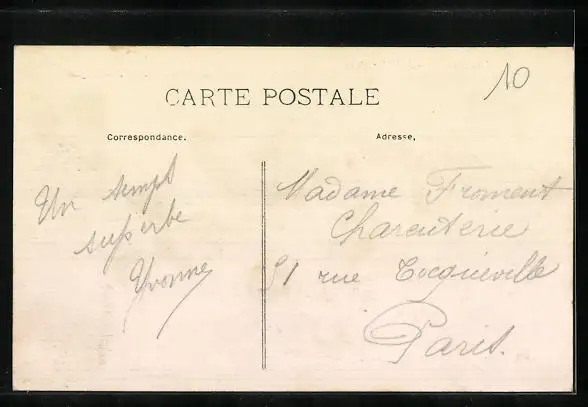 10
CARTE POSTALE
Correspondance.
Adresse,
Un temps
superbe
Yvonne
Madame Froment
Charcuterie
51 rue Tocqueville
Paris.